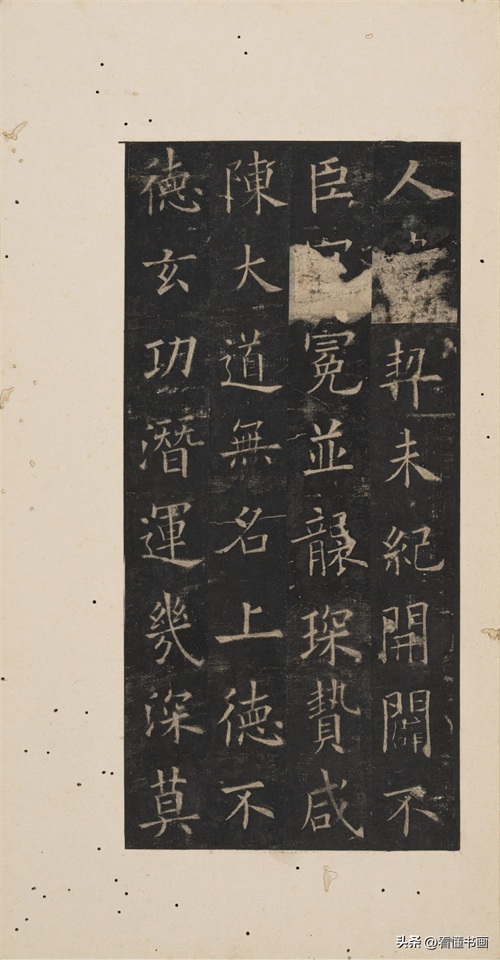 人契未紀開闢不
臣冕並襲琛贄咸
陳大道無名上德不
德玄功潛運幾深莫
头条 @看懂书画